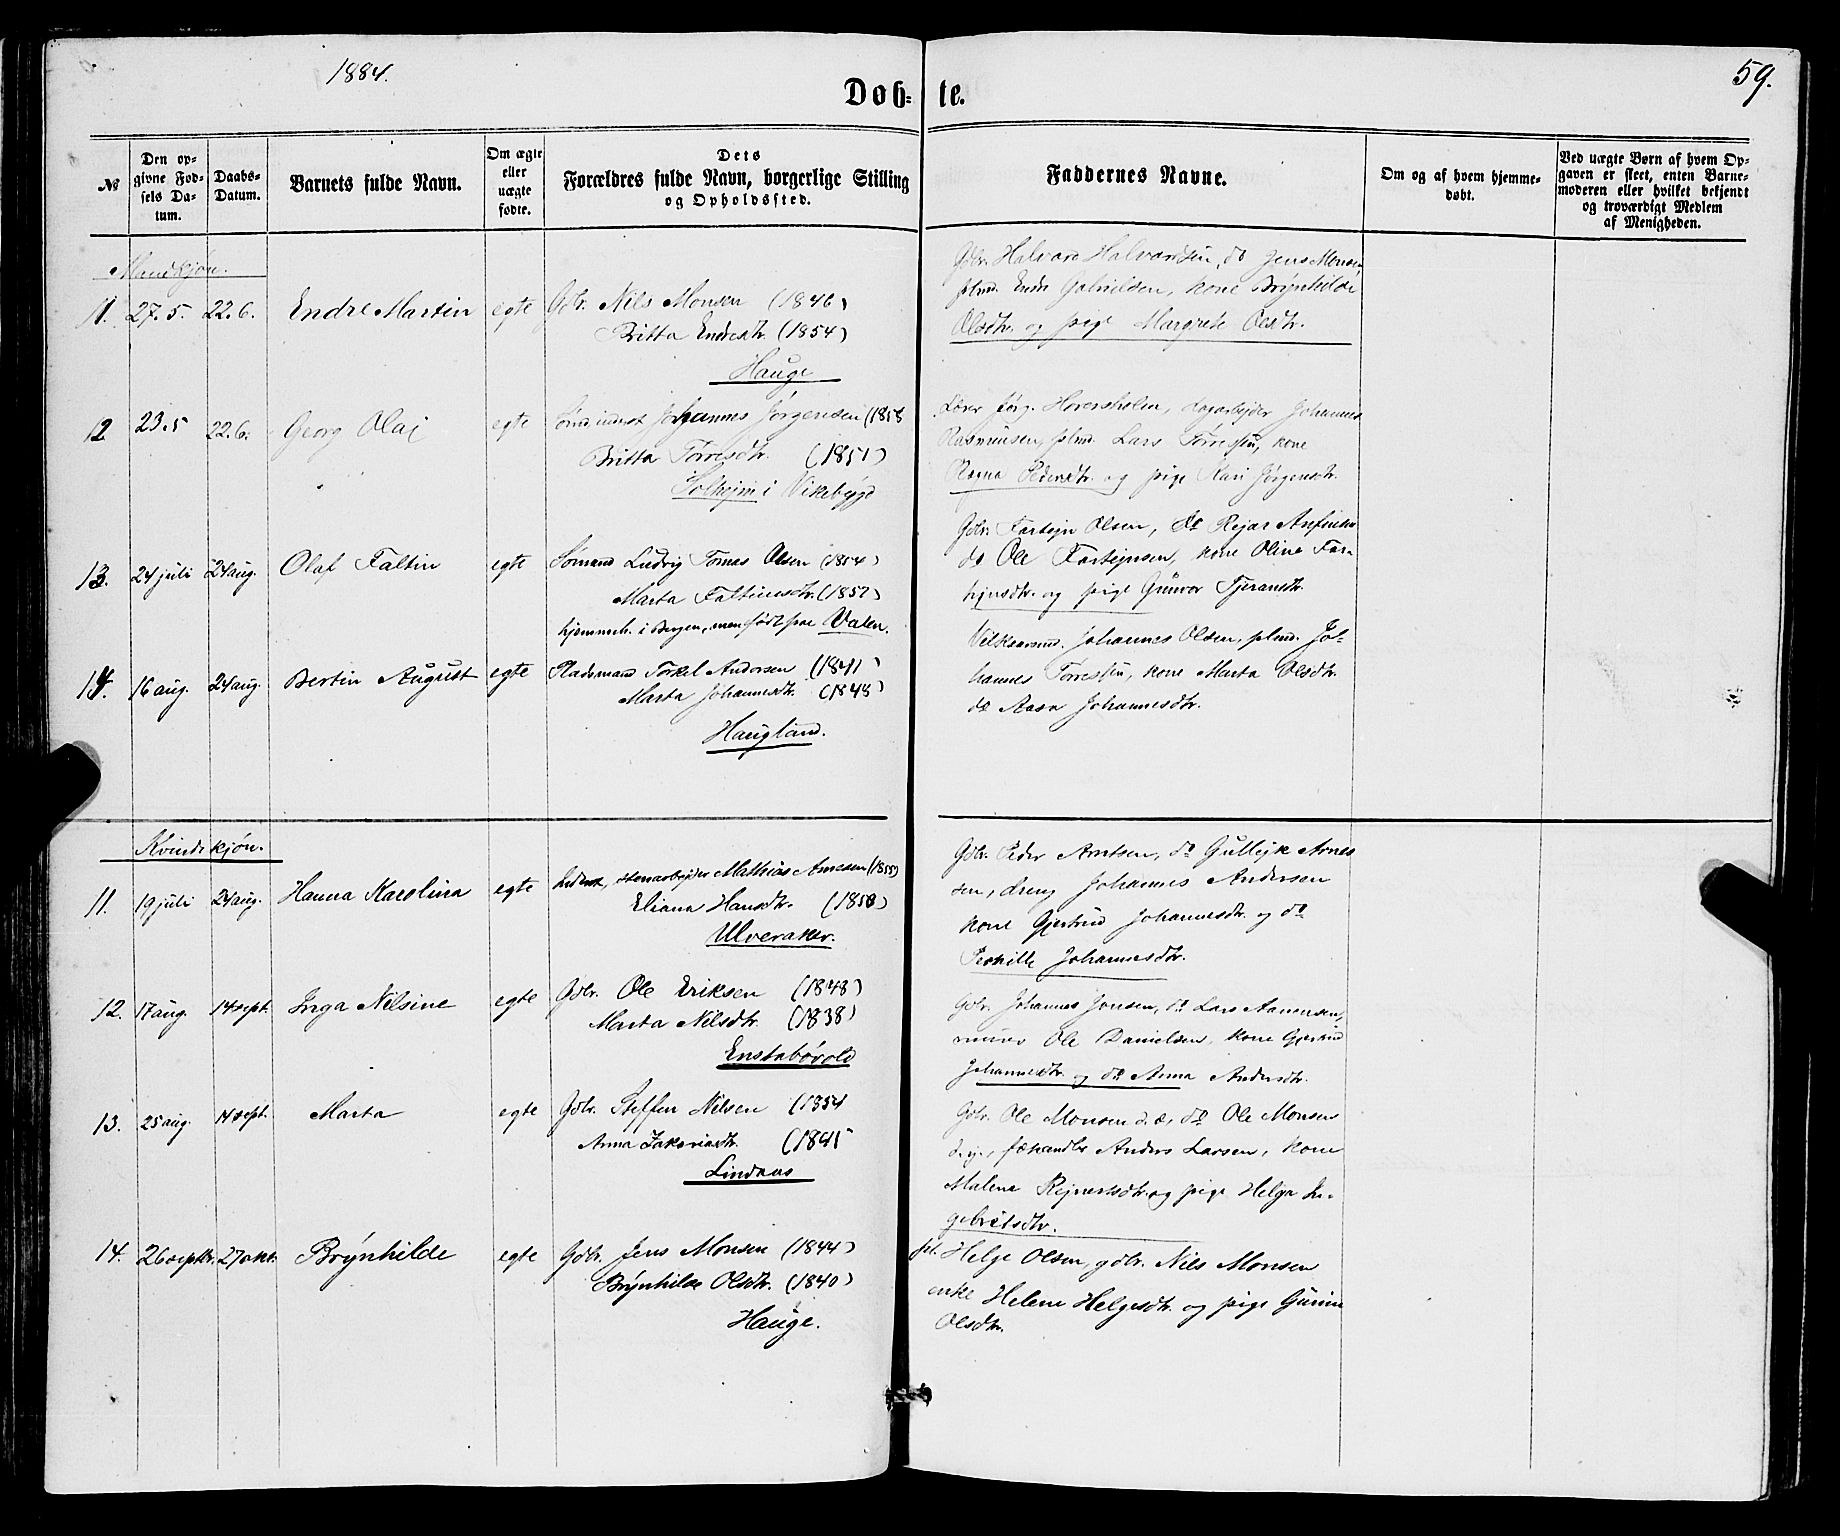 1884.
59.
Døb- te.
№
Den op-
givne Fød-
sels Da-
tum.
Daabs-
Datum.
Barnets fulde Navn.
Om ægte
eller
uægte
fødte.
Dets
Forældres fulde Navn, borgerlige Stilling
og Opholdssted.
Faddernes Navne.
Om og af hvem hjemme-
døbt.
Ved uægte Børn af hvem Op-
gaven er skeet, enten Barne-
moderen eller hvilket bekjendt
og troværdigt Medlem
af Menigheden.
Mandkjøn.
11. 27.5. 22.6. Endre Martin egte Gdbr. Nils Monsen (1846)
Britta Endresdtr. (1854)
Hauge
Gdbr. Halvard Halvardsen, do Jens Monsen,
plmd. Endre Gabrielsen, kone Brynhilde
Olsdtr. og pige Margrete Olsdtr.
12 23.5 22.6. Georg Olaj egte Johannes Jørgensen (1858
Britta Torresdtr. (1851)
Solhejm i Vikebygd
Lærer Jørg. Hoversholm, dagarbejder Johannes
Rasmussen, plmd. Lars Torressen, kone
Ragna Pedersdtr. og pige Kari Jørgensdtr.
13. 24 juli 24 aug. Olaf Faltin egte Sømand Ludvig Tomas Olsen (1854)
Marta Faltinsdtr. (1852)
hjemmeh. i Bergen, men født paa Valen.
Gdbr. Fartejn Olsen, do Rejar Anfinsen
do Ole Fartejnsen, kone Oline Far-
tejnsdtr. og pige Gunvor Tjeransdtr.
14. 16 aug. 24 aug. Bertin August egte Pladsmand Torkel Andersen (1841)
Marta Johannesdtr. (1848)
Haugland.
Vilkaarsmd. Johannes Olsen, plmd. Jo-
hannes Torressen, kone Marta Olsdtr.
do Aasa Johannesdtr.
Kvindekjøn.
11. 19 juli 24 aug. Hanna Karolina egte Inderst, stenarbejder Mathias Arnesen (1855)
Eliana Hansdtr. (1850)
Ulveraker.
Gdbr. Peder Arntsen, do Gullejk Arnes
sen, dreng Johannes Andersen
kone Gjertrud Johannesdtr. og do
Pernille Johannesdtr.
12. 17 aug. 14 sept. Inga Nilsine egte Gdbr. Ole Eriksen (1848)
Marta Nilsdtr. (1838)
Enstabøvold
Gdbr. Johannes Jonsen, do Lars Aamensen,
murer Ole Danielsen, kone Gjertrud
Johannesdtr. og do Anna Andersdtr.
13. 25 aug. 14 sept. Marta egte Gdbr. Steffen Nilsen (1854
Anna Sakariasdtr. (1845
Lindaas
Gdbr. Ole Monsen d.æ, do Ole Monsen
d.y., fæhandler Anders Larsen, kone
Malena Rejnertsdtr. og pige Helga In-
gebretsdtr.
14. 26 septbr. 27 okt. Brynhilde egte Gdbr. Jens Monsen (1844)
Brynhilde Olsdtr. (1840)
Hauge.
Helge Olsen, gdbr. Nils Monsen
enke Helene Helgesdtr. og pige Gurine
Olsdtr.